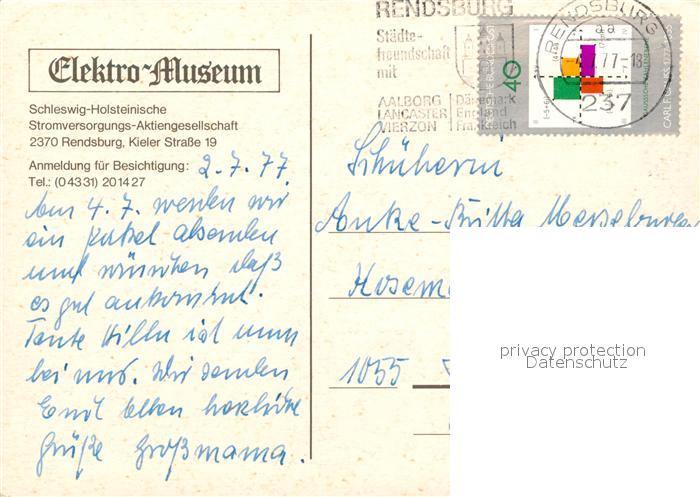 Elektro-Museum
Schleswig-Holsteinische
Stromversorgungs-Aktiengesellschaft
2370 Rendsburg, Kieler Straße 19
Anmeldung für Besichtigung:
Tel.: (0 43 31) 20 14 27
2.7.77.
Am 4.7. werden wir
ein Paket absenden
und wünschen daß
es gut ankommt.
Tante Hilla ist nun
bei uns. Wir senden
Euch allen herzliche
Grüße Großmama.
RENDSBURG
Städte-
freundschaft
mit
AALBORG Dänemark
LANCASTER England
VIERZON Frankreich
RENDSBURG
aa
7.77-18
237
40
CARL F. GAUSS
Schülerin
Anke-Britta
1055
privacy protection
Datenschutz